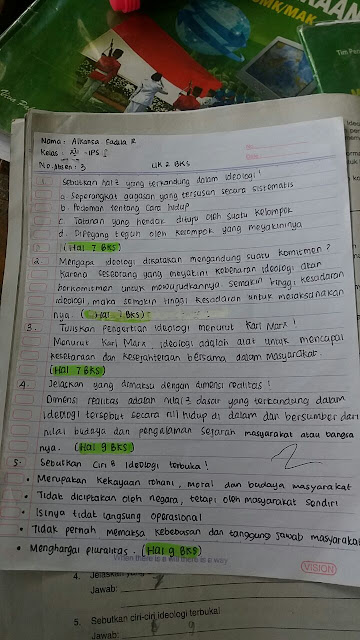 SMK/MAK
Tim Pen
Nama : Alkansa Fadila R
Kelas : XII - IPS 5
No. Absen : 3
UK 2 BKS
No.
Date
1. Sebutkan hal2 yang terkandung dalam ideologi !
a. Seperangkat gagasan yang tersusun secara sistematis
b. Pedoman tentang cara hidup
c. Tatanan yang hendak dituju oleh suatu kelompok
d. Dipegang teguh oleh kelompok yang meyakininya
(Hal 7 BKS)
2. Mengapa ideologi dikatakan mengandung suatu komitmen ?
Karena seseorang yang meyakini kebenaran ideologi akan
berkomitmen untuk mewujudkannya. Semakin tinggi kesadaran
ideologi, maka semakin tinggi kesadaran untuk melaksanakan
nya. (Hal 7 BKS)
3. Tuliskan Pengertian ideologi menurut Karl Marx !
Menurut Karl Marx, ideologi adalah alat untuk mencapai
kesetaraan dan kesejahteraan bersama dalam masyarakat.
(Hal 7 BKS)
4. Jelaskan yang dimaksu dengan dimensi realitas !
Dimensi realitas adalah nilai2 dasar yang terkandung dalam
ideologi tersebut secara riil hidup di dalam dan bersumber dari
nilai budaya dan pengalaman sejarah masyarakat atau bangsa
nya. (Hal 9 BKS)
5. Sebutkan ciri2 ideologi terbuka !
• Merupakan kekayaan rohani, moral dan budaya masyarakat
• Tidak diciptakan oleh negara, tetapi oleh masyarakat sendiri
• Isinya tidak langsung operasional
• Tidak pernah memaksa kebebasan dan tanggung jawab masyarakat
• Menghargai pluralitas. (Hal 9 BKS)
When there is a will there is a way
VISION
4. Jelaskan yang
Jawab:
5. Sebutkan ciri-ciri ideologi terbuka!
Jawab: